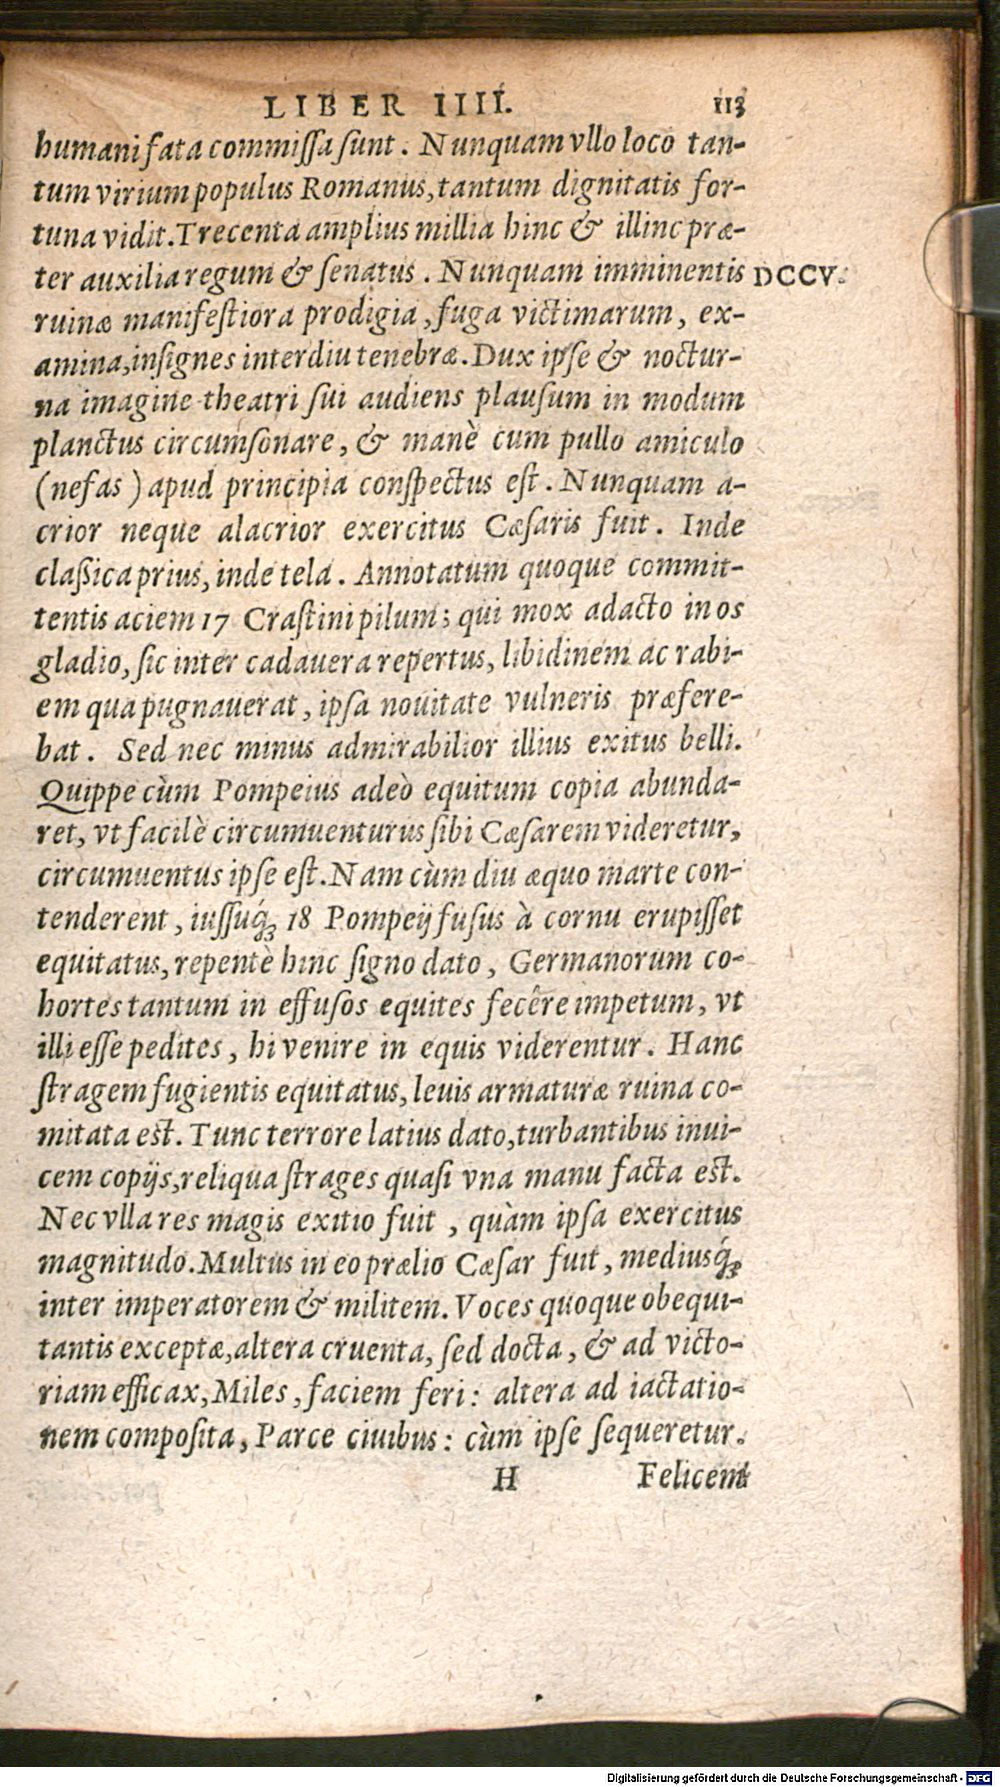 LIBER IIII. 113
humani fata commiſſa ſunt. Nunquam vllo loco tan-
tum virium populus Romanus, tantum dignitatis for-
tuna vidit. Trecenta amplius millia hinc & illinc præ-
ter auxilia regum & ſenatus. Nunquam imminentis DCCV.
ruinæ manifeſtiora prodigia, fuga victimarum, ex-
amina, inſignes interdiu tenebræ. Dux ipſe & noctur-
na imagine theatri ſui audiens plauſum in modum
planctus circumſonare, & manè cum pullo amiculo
(nefas) apud principia conſpectus eſt. Nunquam a-
crior neque alacrior exercitus Cæſaris fuit. Inde
claſſica prius, inde tela. Annotatum quoque commit-
tentis aciem 17 Craſtini pilum; qui mox adacto in os
gladio, ſic inter cadauera repertus, libidinem ac rabi-
em qua pugnauerat, ipſa nouitate vulneris præfere-
bat. Sed nec minus admirabilior illius exitus belli.
Quippe cùm Pompeius adeò equitum copia abunda-
ret, vt facilè circumuenturus ſibi Cæſarem videretur,
circumuentus ipſe eſt. Nam cùm diu æquo marte con-
tenderent, iuſſuq́ꝫ 18 Pompeij fuſus à cornu erupiſſet
equitatus, repentè hinc ſigno dato, Germanorum co-
hortes tantum in effuſos equites fecêre impetum, vt
illi eſſe pedites, hi venire in equis viderentur. Hanc
ſtragem fugientis equitatus, leuis armaturæ ruina co-
mitata eſt. Tunc terrore latius dato, turbantibus inui-
cem copijs, reliqua ſtrages quaſi vna manu facta eſt.
Nec vlla res magis exitio fuit, quàm ipſa exercitus
magnitudo. Multus in eo prælio Cæſar fuit, mediusq́ꝫ
inter imperatorem & militem. Voces quoque obequi-
tantis exceptæ, altera cruenta, ſed docta, & ad victo-
riam efficax, Miles, faciem feri: altera ad iactatio-
nem compoſita, Parce ciuibus: cùm ipſe ſequeretur.
H Felicem
Digitalisierung gefördert durch die Deutsche Forschungsgemeinschaft - DFG